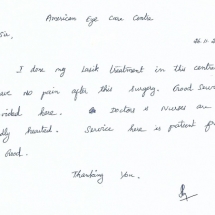 American Eye Care Centre
Sir,
26.11.2
I done my lasik treatment in this centre
have no pain after this surgery. Good serv
vided here. Doctors & nurses are
dly hearted. Service here is patient fr
Good.
Thanking you.